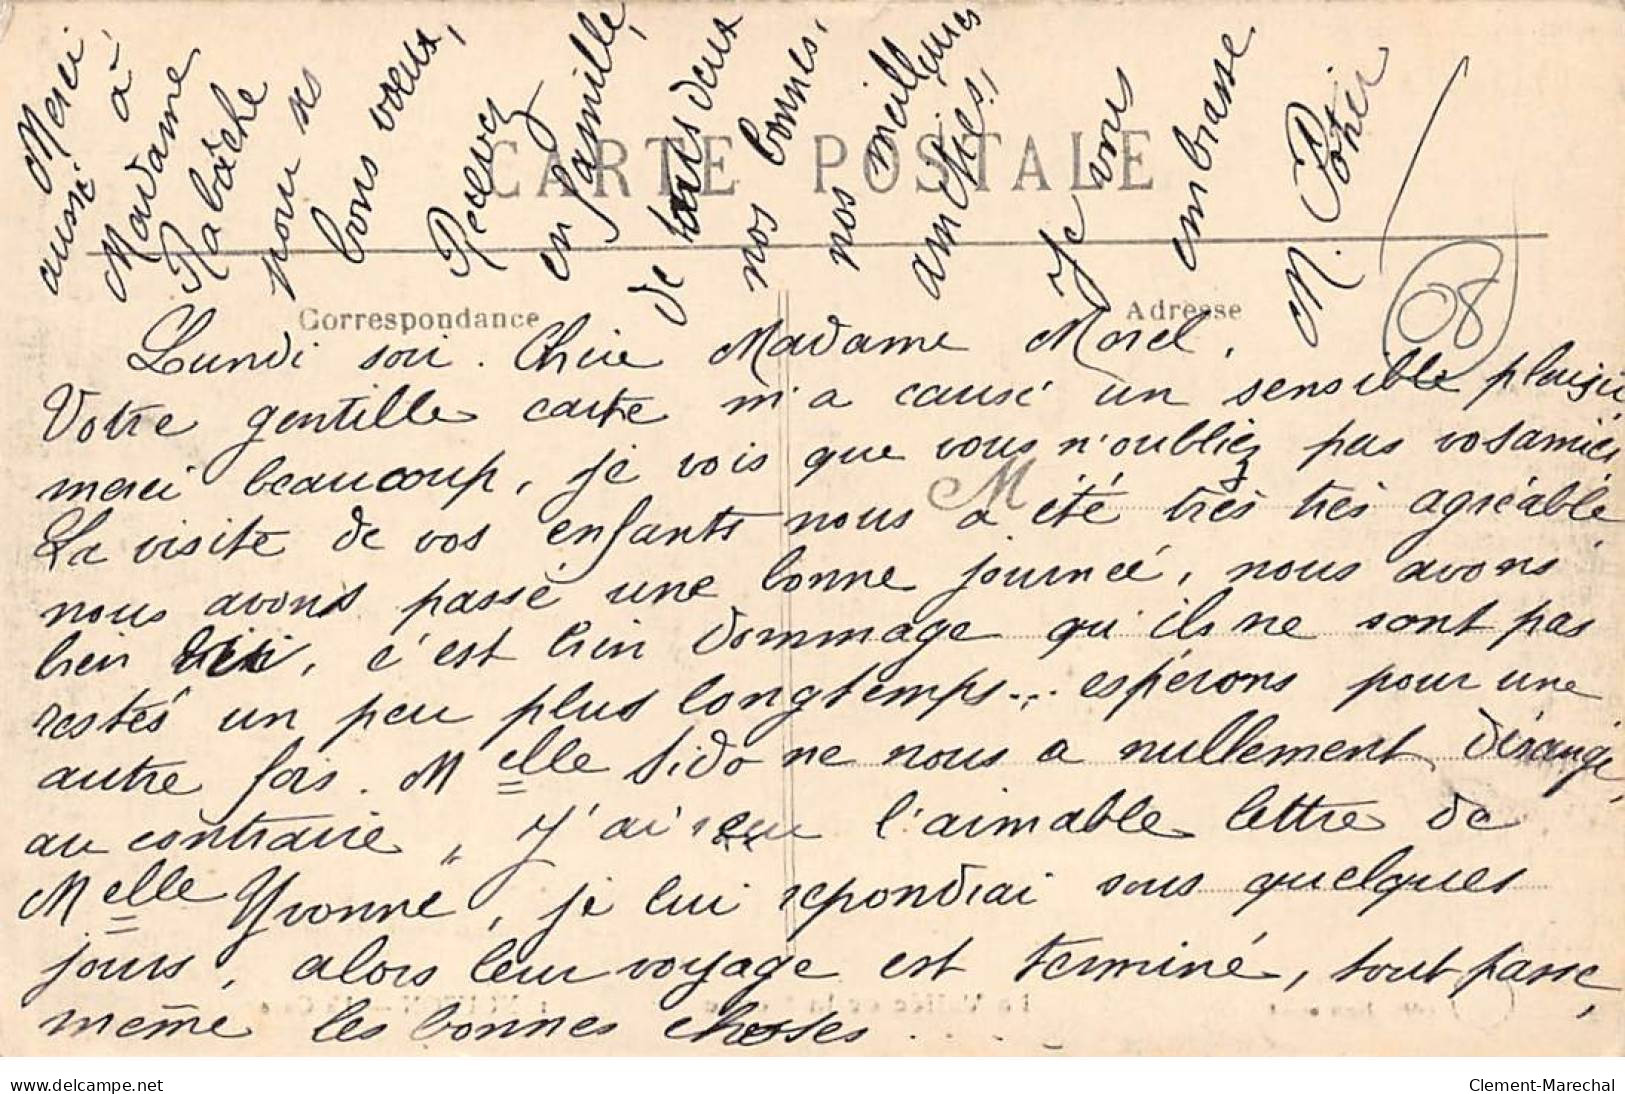 CARTE POSTALE
Correspondance
Adresse
Lundi soir. Chère Madame Morel,
Votre gentille carte m'a causé un sensible plaisir
merci beaucoup, je vois que vous n'oubliez pas vos amies
La visite de vos enfants nous a été très très agréable
M
nous avons passé une bonne journée, nous avons
bien ri, c'est bien dommage qu'ils ne sont pas
restés un peu plus longtemps... espérons pour une
autre fois. Melle Sido ne nous a nullement dérangé,
au contraire, J'ai reçu l'aimable lettre de
Melle Yvonne, je lui repondrai sous quelques
jours, alors leur voyage est terminé, tout passe,
même les bonnes choses....
Merci
aussi à
Madame
Rabâche
pour ses
bons vœux,
Recevez
en famille,
de tous deux
nos bonnes,
nos meilleures
amitiés,
Je vous
embrasse
M. Potier
08
delcampe.net
Clement-Marechal